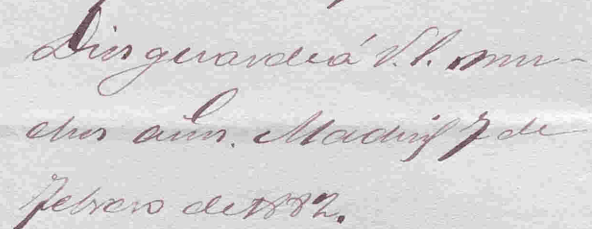 Dios guarde á V.I. mu-
chos años. Madrid 7 de
febrero de 1882.